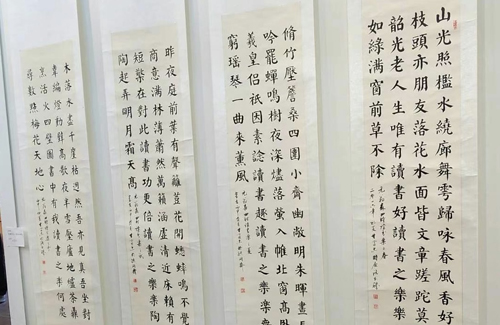 山光照檻水繞廊舞雩歸咏春風香好
枝頭亦朋友落花水面皆文章蹉跎莫
韶光老人生唯有讀書好讀書之樂樂
如綠滿窗前草不除
脩竹壓簷桑四圍小齋幽敞明朱暉晝
吟罷蟬鳴樹夜深燼落螢入帷北窗高卧
羲皇侶祇因素諗讀書趣讀書之樂樂
窮瑶琴一曲来薰風
昨夜庭前葉有聲籬荳花開蟋蟀鳴不覺
商意滿林薄蕭然萬籟涵虛清近床賴有
短檠在對此讀書功更倍讀書之樂樂陶
陶起弄明月霜天高
木落水盡千崖枯迥然吾亦見真吾坐對
韋編燈動壁高歌夜半雪壓廬地爐茶鼎
烹活火四壁圖書中有我讀書之樂何處
尋數點梅花天地心